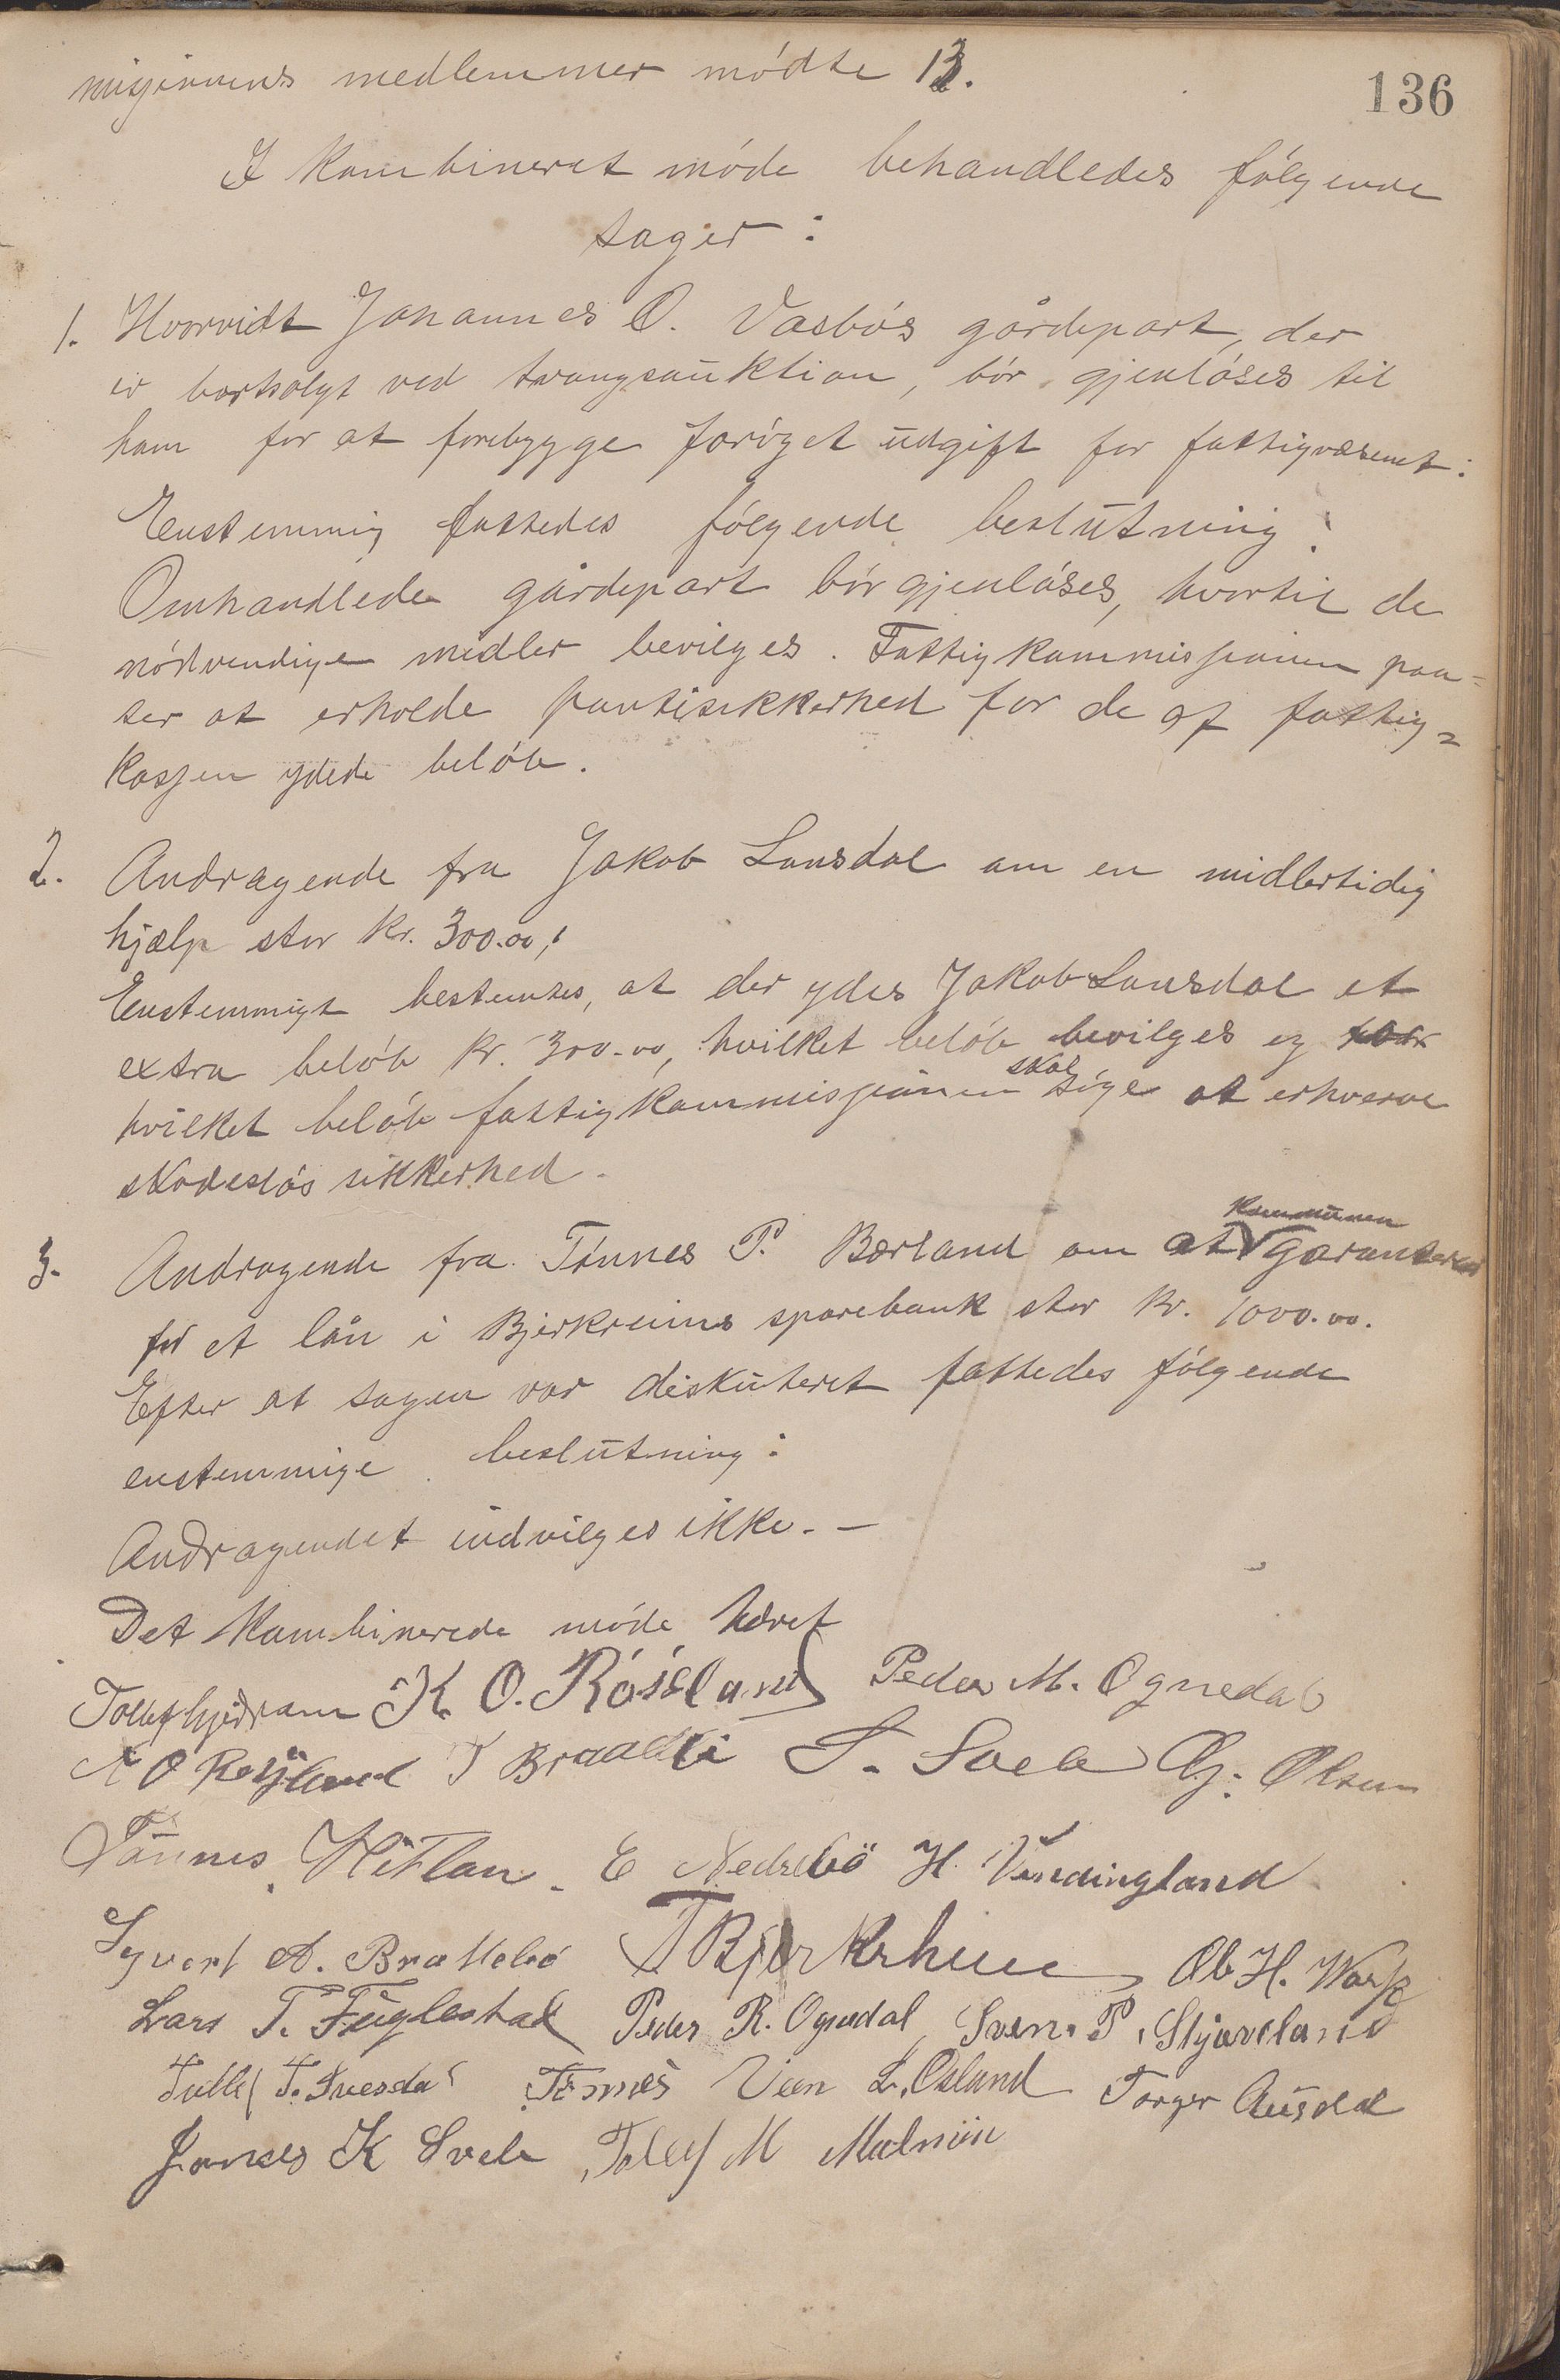 136
misjinens medlemmer mödte 13.
I kombineret möde behandledes fölgende
sager:
1. Hvorvidt Johannes O. Vasbös gårdepart, der
er bortsolgt ved tvangsauktion, bör gjenlöses til
ham for at forebygge foröget udgift for fattigvæsenet:
Enstemmig fattedes fölgende beslutning:
Omhandlede gårdepart bör gjenlöses, hvortil de
nödvendige midler bevilges. Fattigkommissionen paa-
ser at erholde pantisikkerhed for de af fattig-
kassen ydede belöb.
2. Andragende fra Jakob Lansdal om en midlertidig
hjælp stor kr. 300.00,:
Enstemmigt bestemtes, at der ydes Jakob Lansdal et
extra belöb kr. 300.00, hvilket belöb bevilges og
hvilket belöb fattigkommissionen skal söge at erhverve
skadeslös sikkerhed.
3. Andragende fra Tönnes P. Bærland om at kommunen garanterer
for et lån i Bjerkreims sparebank stor kr. 1000.00.
Efter at sagen var diskuteret fattedes fölgende
enstemmige beslutning:
Andragendet indvilges ikke. –
Det kombinerede möde hævet
Tollef hjedram K. O. Rösland Peder M. Ognedal
A O Røysland T Braadli S. Svele G. Olsen
Tönnes Hetlan. E Nedrebö H. Vendingland
Syvert A. Brattebö T Bjerkrheim Ol H. Wask
Lars T. Fuglestad Peder R. Ognedal, Sven. P. Skjæveland
Tollef T. Tuesdal Tönnes Veen L. Osland Torger Ausdal
Jonas K Svele Tollef M Malmin